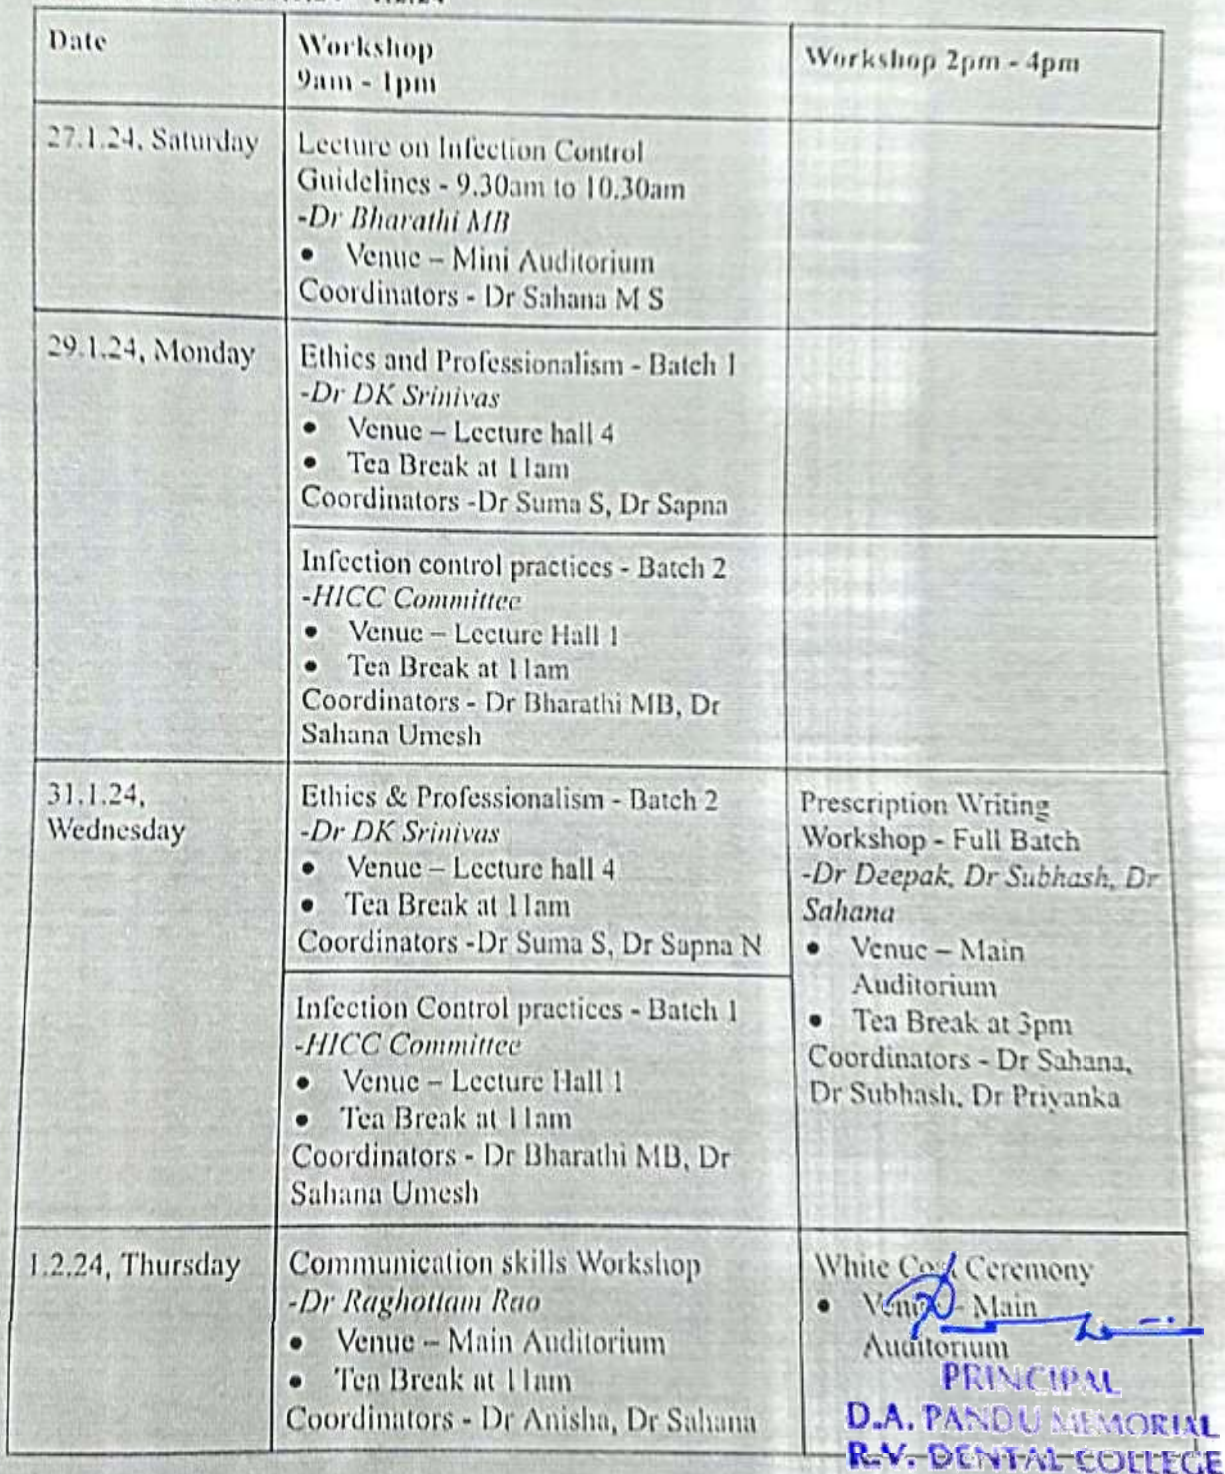 Date
Workshop
9am - 1pm
Workshop 2pm - 4pm
27.1.24, Saturday
Lecture on Infection Control
Guidelines - 9.30am to 10.30am
-Dr Bharathi MB
• Venue – Mini Auditorium
Coordinators - Dr Sahana M S
29.1.24, Monday
Ethics and Professionalism - Batch 1
-Dr DK Srinivas
• Venue – Lecture hall 4
• Tea Break at 11am
Coordinators -Dr Suma S, Dr Sapna
Infection control practices - Batch 2
-HICC Committee
• Venue – Lecture Hall 1
• Tea Break at 11am
Coordinators - Dr Bharathi MB, Dr
Sahana Umesh
31.1.24,
Wednesday
Ethics & Professionalism - Batch 2
-Dr DK Srinivas
• Venue – Lecture hall 4
• Tea Break at 11am
Coordinators -Dr Suma S, Dr Sapna N
Infection Control practices - Batch 1
-HICC Committee
• Venue – Lecture Hall 1
• Tea Break at 11am
Coordinators - Dr Bharathi MB, Dr
Sahana Umesh
Prescription Writing
Workshop - Full Batch
-Dr Deepak, Dr Subhash, Dr
Sahana
• Venue – Main
Auditorium
• Tea Break at 3pm
Coordinators - Dr Sahana,
Dr Subhash, Dr Priyanka
1.2.24, Thursday
Communication skills Workshop
-Dr Raghottam Rao
• Venue – Main Auditorium
• Tea Break at 11am
Coordinators - Dr Anisha, Dr Sahana
White Coat Ceremony
• Venue - Main
Auditorium
PRINCIPAL
D.A. PANDU MEMORIAL
R.V. DENTAL COLLEGE